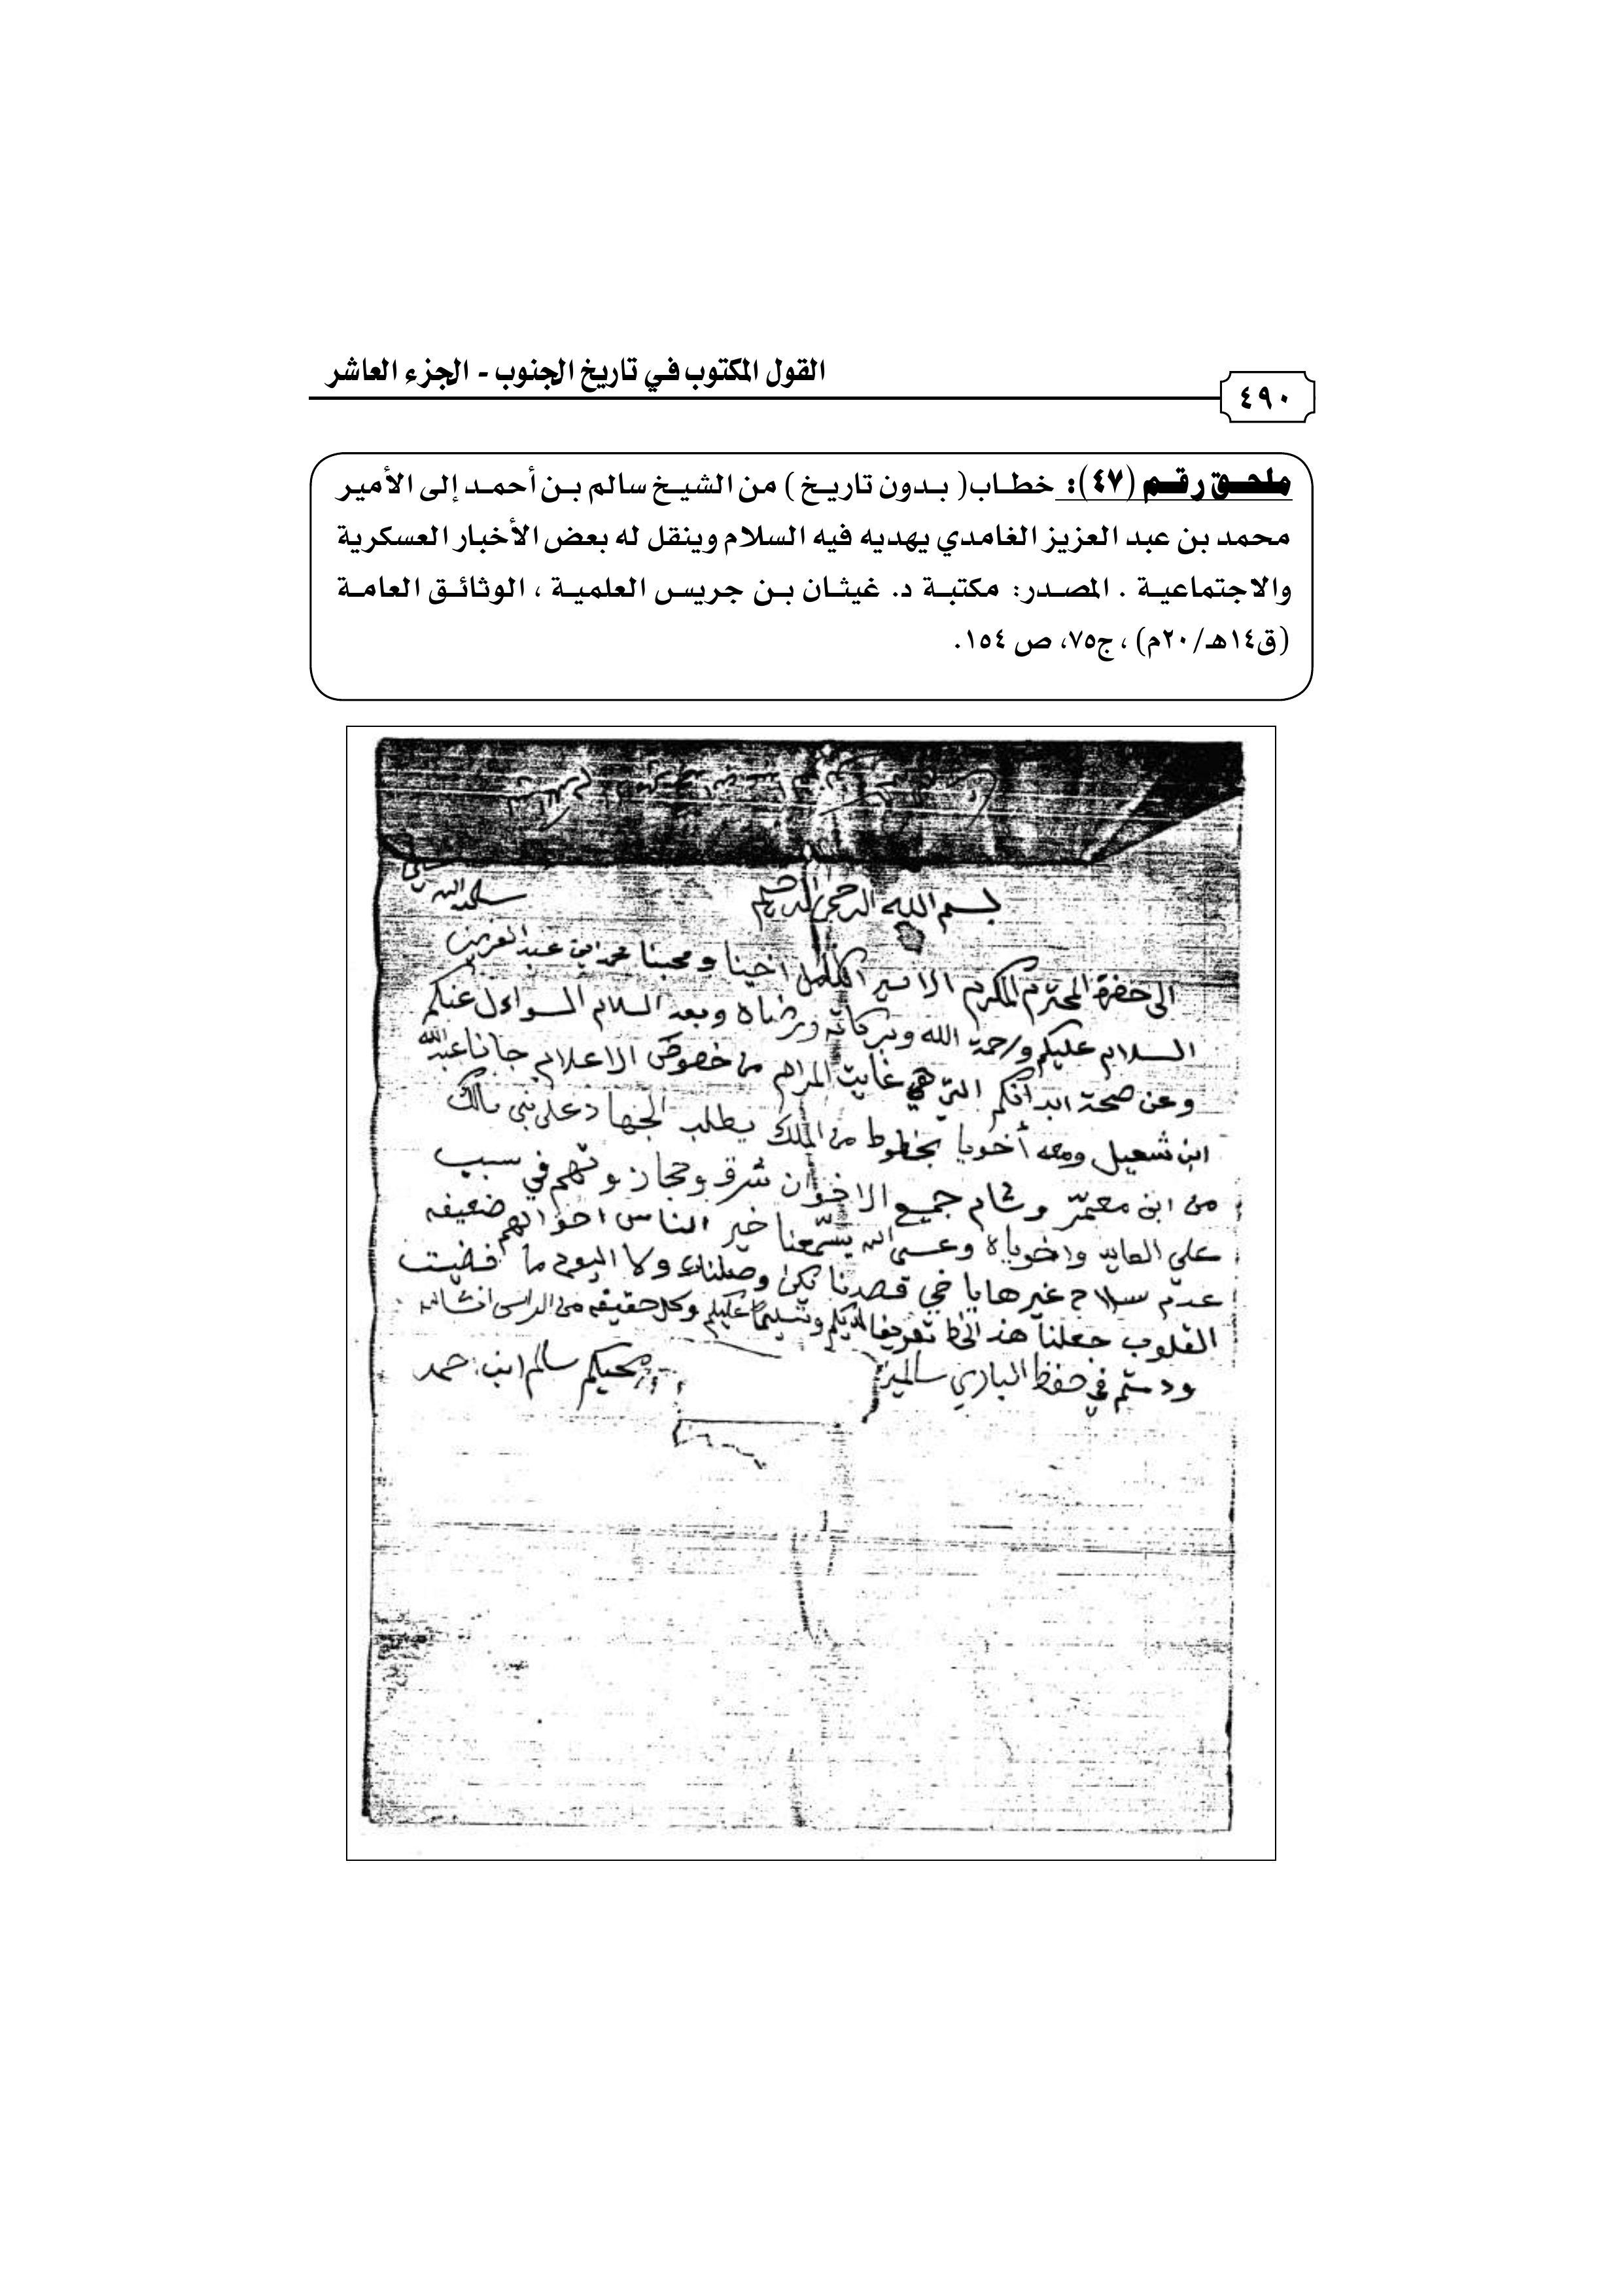 القول المكتوب في تاريخ الجنوب - الجزء العاشر
٤٩٠
ملحق رقم (٤٧): خطاب ( بدون تاريخ ) من الشيخ سالم بن أحمد إلى الأمير
محمد بن عبد العزيز الغامدي يهديه فيه السلام وينقل له بعض الأخبار العسكرية
والاجتماعية . المصدر: مكتبة د. غيثان بن جريس العلمية ، الوثائق العامة
(ق١٤هـ/٢٠م) ، ج٧٥، ص ١٥٤.
بسم الله الرحمن الرحيم
سلمه الله
الى حضرة المحترم المكرم الامير اخينا ومحبنا محمد ابن عبد العزيز
السلام عليكم ورحمة الله وبركاته ورضاه وبعد السلام السواءل عنكم
وعن صحة ابدانكم التي هي غايت المرام من خصوص الاعلام جانا عبدالله
ابن شعيل ومعه أخويا بخطوط من الملك يطلب الجهاد على بني مالك
من ابن معمّر وشام جميع الاخوان شرق وحجاز وتهم في سبب
علي العايد واخوياه وعسى الله يسّمعنا خير الناس احوالهم ضعيفه
عدم سلاح غيرها يا خي قصدنا وصلناك ولا اليوم ما فضيت
القلوب جعلنا هذ الخط تعريفا لديكم وتسليما عليكم وكل حقيقه من الراس
ودمتم في حفظ الباري سالمين محبكم سالم ابن حمد